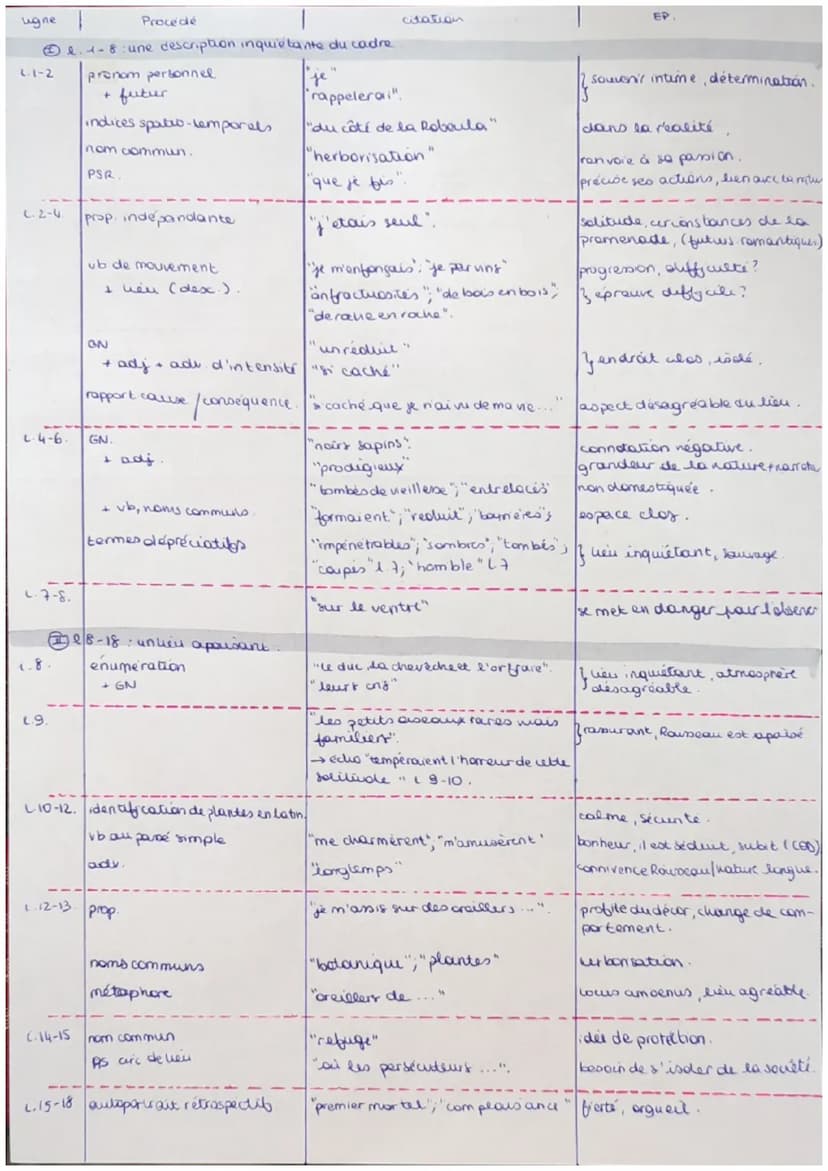 Ligne Procédé citation EP.
I l. 1-8 : une description inquiétante du cadre
L.1-2 pronom personnel "je" } souvenir intime, détermination.
+ futur "rappelerai".
indices spatio-temporels "du côté de la Robaila" dans la réalité,
nom commun. "herborisation" renvoie à sa passion.
PSR. "que je fis". précise ses actions, lien avec
L.2-4. prop. indépandante "j'étais seul". solitude, circonstances de la
promenade, (futurs romantiques)
vb de mouvement "je m'enfonçais"; "je parvins" progression, difficulté?
+ lieu (desc.). "anfractuosités"; "de bois en bois"; } épreuve difficile?
"de roche en roche".
GN "un réduit"
+ adj + adv. d'intensité "si caché" } endroit clos, isolé.
rapport cause/conséquence. "si caché que je n'ai vu de ma vie..." aspect désagréable du lieu.
L.4-6. GN. "noirs sapins". connotation négative.
+ adj. "prodigieux" grandeur de la nature +
"tombés de vieillesse"; "entrelacés" non domestiquée.
+ vb, noms communs. "formaient"; "reduit"; "barrières"; espace clos.
termes dépréciatifs "impénétrables"; "sombres"; "tombés"; } lieu inquiétant, sauvage
"coupés" l.7; "horrible" L7
L.7-8. "sur le ventre" se met en danger pour l'observer
II l 8-18 : un lieu apaisant.
L.8. énumération "le duc, la chevêche et l'orfraie". } lieu inquiétant, atmosphère
+ GN "leurs cris" désagréable.
L.9. "les petits oiseaux rares mais
familiers". } rassurant, Rousseau est apaisé
→ écho "tempéraient l'horreur de cette
solitude" L 9-10.
L.10-12. identification de plantes en latin. calme, sécurité.
vb au passé simple "me charmèrent"; "m'amusèrent" bonheur, il est séduit, subit (COD)
adv. "longtemps" connivence Rousseau/nature longue.
L.12-13 prop. "je m'assis sur des oreillers ...". profite du décor, change de com-
portement.
noms communs "botanique"; "plantes" herborisation.
métaphore "oreillers de ..." locus amoenus, lieu agréable.
L.14-15 nom commun "refuge" idée de protection.
PS circ de lieu "où les persécuteurs ...". besoin de s'isoler de la société.
L.15-18 autoportrait rétrospectifs "premier mortel"; "complaisance" fierté, orgueil.